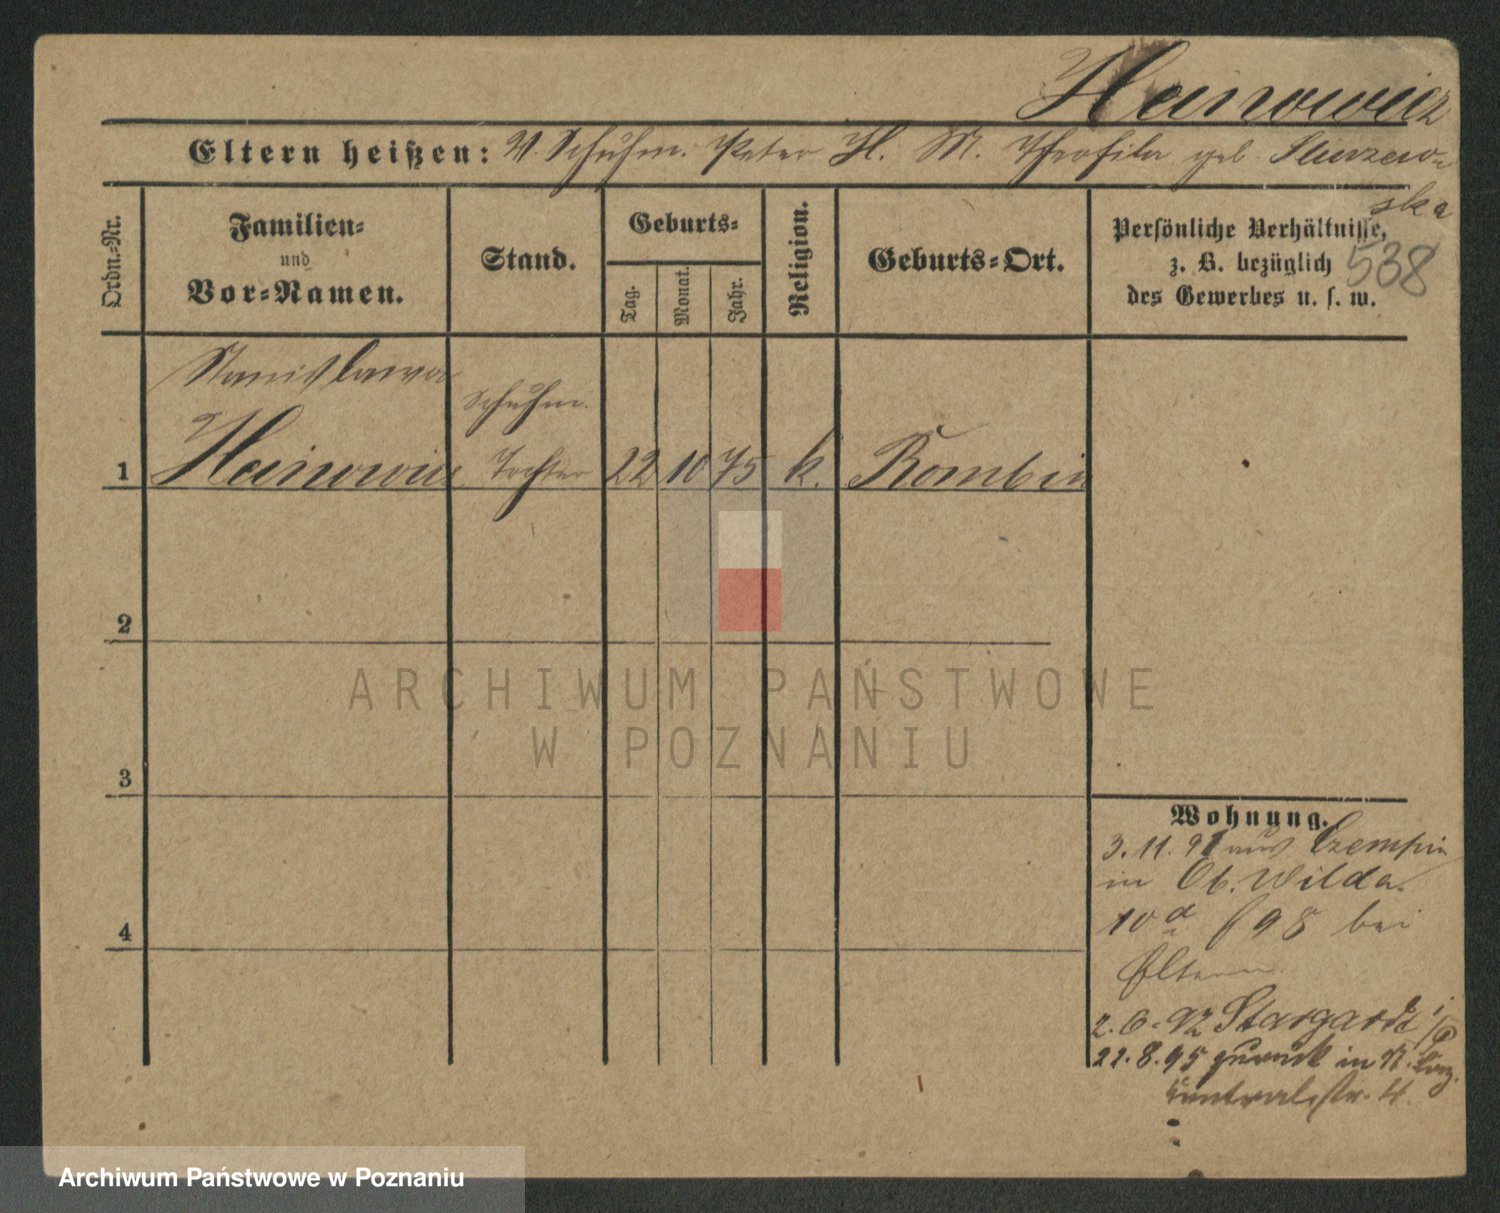 Heinowicz
Eltern heißen: V. Schuhm. Peter H. M. Theofila geb.
ska
Ordn.-Nr.
Familien-
und
Vor-Namen.
Stand.
Geburts-
Tag.
Monat.
Jahr.
Religion.
Geburts-Ort.
Persönliche Verhältnisse,
z. B. bezüglich
des Gewerbes u. s. w.
538
Stanislawa
Schuhm.
1 Heinowicz Tochter 22 10 75 k. Rombin
2
3
4
ARCHIWUM PAŃSTWOWE
W POZNANIU
Wohnung.
3.11.91 aus Czempin
in Ob. Wilda.
10a f 98 bei
Eltern
2.6.92 Stargardt i/P
22.8.95 zurück in St.
Centralstr. 4.
Archiwum Państwowe w Poznaniu